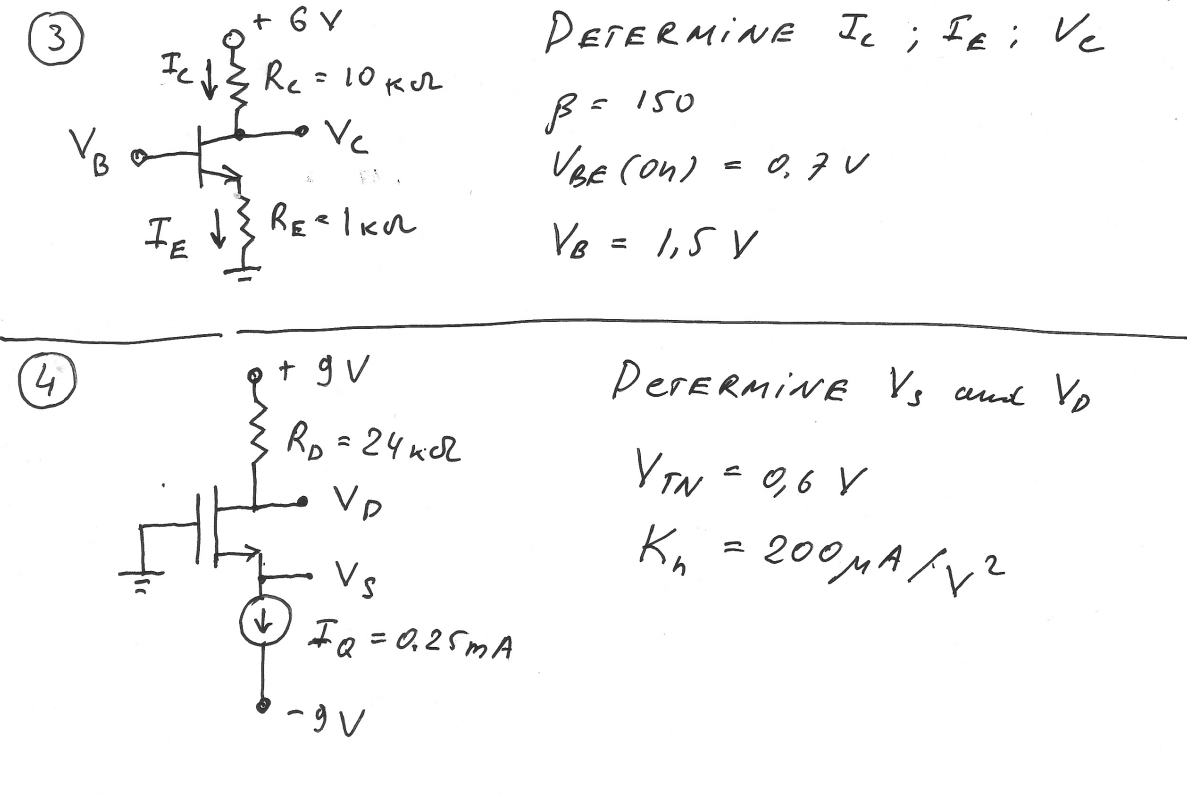 3
+ 6 V
I_C
R_C = 10 kΩ
V_B
V_C
I_E
R_E = 1 kΩ
DETERMINE I_C ; I_E ; V_C
β = 150
V_BE (on) = 0.7 V
V_B = 1,5 V
4
+ 9 V
R_D = 24 kΩ
V_D
V_S
I_Q = 0.25 mA
- 9 V
DETERMINE V_S and V_D
V_TN = 0,6 V
K_n = 200 μA/V²